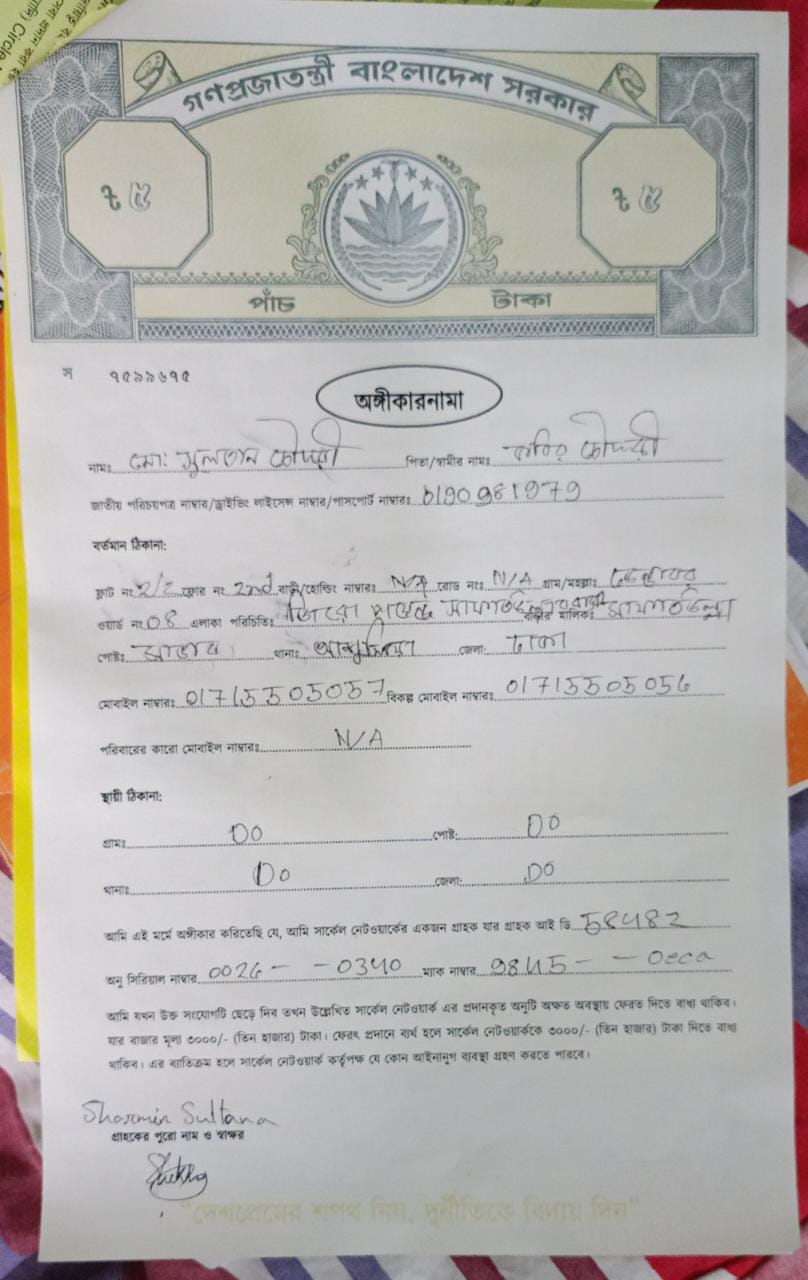 Circle
গণপ্রজাতন্ত্রী বাংলাদেশ সরকার
৳ ৫ ৳ ৫
পাঁচ টাকা
স ৭৫৯৯৬৭৫
অঙ্গীকারনামা
নামঃ মো: সুলতান চৌধুরী পিতা/স্বামীর নামঃ কবির চৌধুরী
জাতীয় পরিচয়পত্র নাম্বার/ড্রাইভিং লাইসেন্স নাম্বার/পাসপোর্ট নাম্বারঃ 0190981979
বর্তমান ঠিকানা:
ফ্লাট নং 2/2 ফ্লোর নং 2nd বাড়ী/হোল্ডিং নাম্বারঃ N/A রোড নংঃ N/A গ্রাম/মহল্লাঃ
ওয়ার্ড নং 08 এলাকা পরিচিতিঃ জিরো পয়েন্ট বাড়ীর মালিকঃ
পোষ্টঃ সাভার থানাঃ আশুলিয়া জেলা: ঢাকা
মোবাইল নাম্বারঃ 01715505057 বিকল্প মোবাইল নাম্বারঃ 01715505056
পরিবারের কারো মোবাইল নাম্বারঃ N/A
স্থায়ী ঠিকানা:
গ্রামঃ DO পোষ্ট: DO
থানাঃ Do জেলা: DO
আমি এই মর্মে অঙ্গীকার করিতেছি যে, আমি সার্কেল নেটওয়ার্কের একজন গ্রাহক যার গ্রাহক আই ডি 58482
অনু সিরিয়াল নাম্বার 0026- -0340 ম্যাক নাম্বার 9845- - 0eca
আমি যখন উক্ত সংযোগটি ছেড়ে দিব তখন উল্লেখিত সার্কেল নেটওয়ার্ক এর প্রদানকৃত অনুটি অক্ষত অবস্থায় ফেরত দিতে বাধ্য থাকিব।
যার বাজার মূল্য ৩০০০/- (তিন হাজার) টাকা। ফেরৎ প্রদানে ব্যর্থ হলে সার্কেল নেটওয়ার্ককে ৩০০০/- (তিন হাজার) টাকা দিতে বাধ্য
থাকিব। এর ব্যতিক্রম হলে সার্কেল নেটওয়ার্ক কর্তৃপক্ষ যে কোন আইনানুগ ব্যবস্থা গ্রহণ করতে পারবে।
Sharmin Sultana
গ্রাহকের পুরো নাম ও স্বাক্ষর
"দেশপ্রেমের শপথ নিন, দুর্নীতিকে বিদায় দিন"